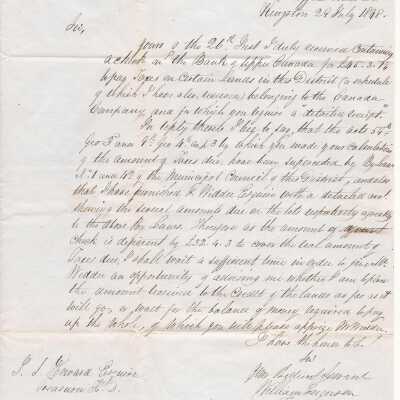 Kingston 29 July 1848.
Sir,
Yours of the 26th Inst I duly received containing
a check on the Bank of Upper Canada for £45.3.
to pay Taxes on Certain Lands in this District (a schedule
of which I have also received) belonging to the Canada
Company, and for which you require a "detailed receipt".
In reply thereto I beg to say, that the acts
Geo 3 and 6th Geo 4th Cap 3 by which you made your Calculation
of the amount of Taxes due, have been superseded by Bylaws
No 1 and 42 of the Municipal Council of this District, and also
that I have furnished Widder Esquire with a detailed
shewing the several amounts due on the lots respectively agreeably
to the above Bye Laws. Therefore as the amount of
Check is deficient by £32.4.3 to cover the real amount of
Taxes due, I shall wait a sufficient time in order to give Mr
Widder an opportunity of advising me whether I am to place
the amount received to the Credit of the lands as far as it
will go, or wait for the balance of money required to pay
up the whole, of which you will please apprize Mr Widder.
I have the honor to be
Sir
Your Obedient Servant
William Ferguson
J. S. Howard Esquire
Treasurer H. D.